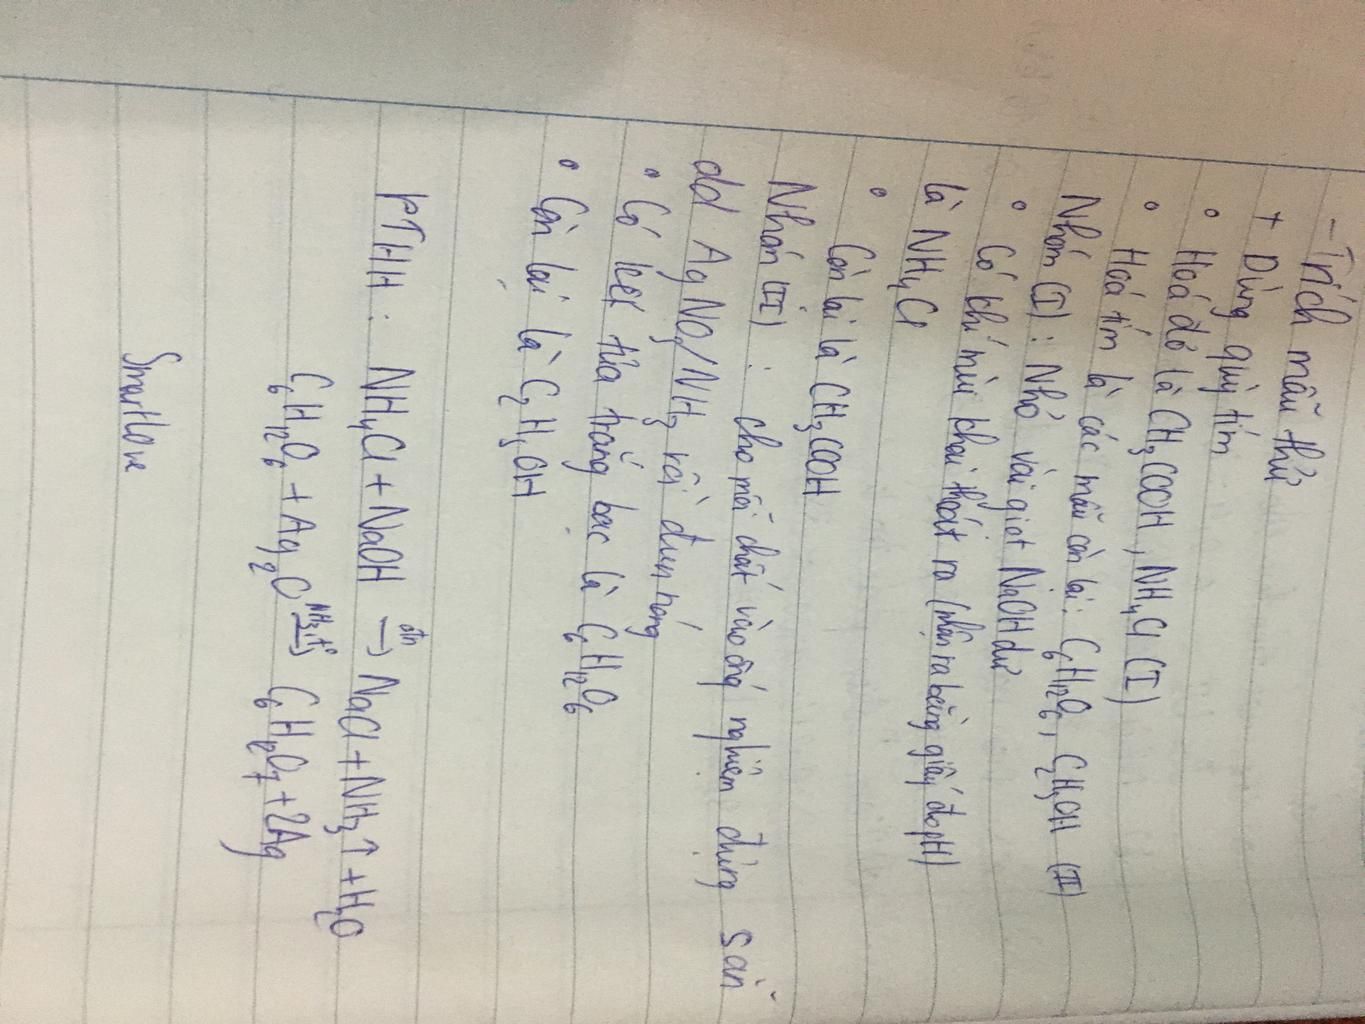 - Trích mẫu thử
+ Dùng quỳ tím
• Hoá đỏ là CH₃COOH, NH₄Cl (I)
• Hoá tím là các mẫu còn lại: C₆H₁₂O₆, C₂H₅OH (II)
Nhóm (I): Nhỏ vài giọt NaOH dư
• Có khí mùi khai thoát ra (nhận ra bằng giấy đo pH)
là NH₄Cl
• Còn lại là CH₃COOH
Nhóm (II): cho mỗi chất vào ống nghiệm đựng sẵn
dd AgNO₃/NH₃ rồi đun nóng
• Có kết tủa trắng bạc là C₆H₁₂O₆
• Còn lại là C₂H₅OH
PTHH: NH₄Cl + NaOH →đn NaCl + NH₃↑ + H₂O
C₆H₁₂O₆ + Ag₂O →NH₃,t° C₆H₁₂O₇ + 2Ag
Smartlove